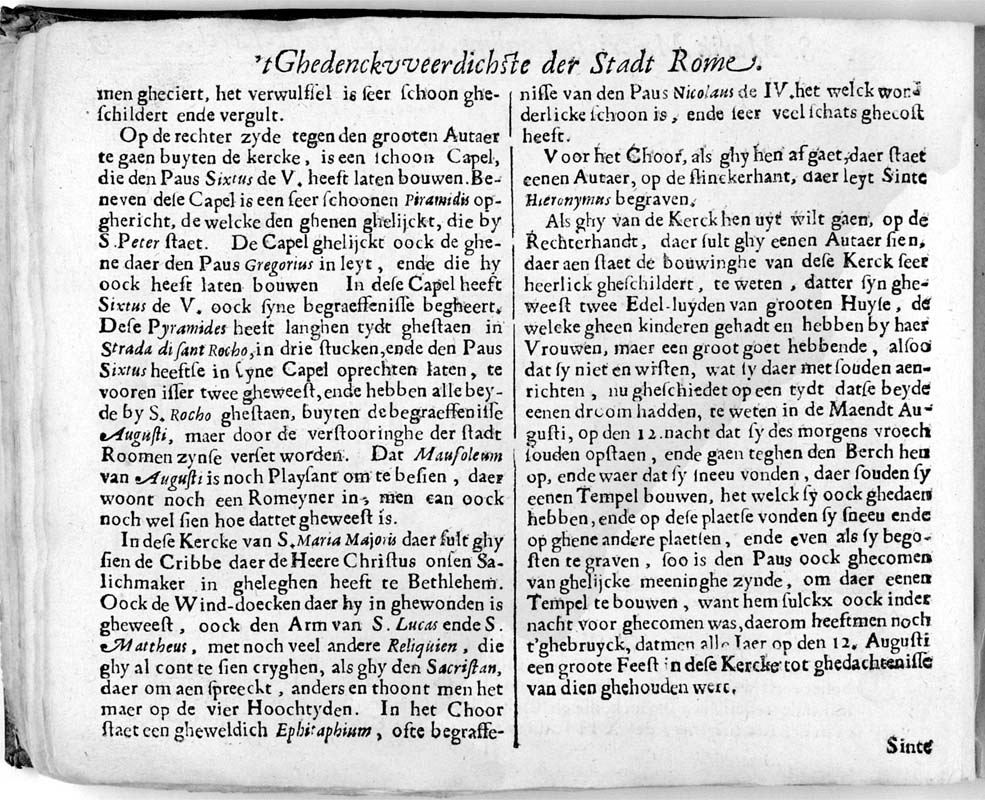 'tGhedenckvveerdichste der Stadt Rome.
men gheciert, het verwulffel is seer schoon ghe-
schildert ende vergult.
Op de rechter zyde tegen den grooten Autaer
te gaen buyten de kercke, is een schoon Capel,
die den Paus Sixtus de V. heeft laten bouwen. Be-
neven dese Capel is een seer schoonen Piramidis op-
ghericht, de welcke den ghenen ghelijckt, die by
S. Peter staet. De Capel ghelijckt oock de ghe-
ne daer den Paus Gregorius in leyt, ende die hy
oock heeft laten bouwen In dese Capel heeft
Sixtus de V. oock syne begraeffenisse begheert.
Dese Pyramides heeft langhen tydt ghestaen in
Strada di sant Rocho, in drie stucken, ende den Paus
Sixtus heeftse in syne Capel oprechten laten, te
vooren isser twee gheweest, ende hebben alle bey-
de by S. Rocho ghestaen, buyten de begraeffenisse
Augusti, maer door de verstooringhe der stadt
Roomen zynse verset worden. Dat Mausoleum
van Augusti is noch Playsant om te besien, daer
woont noch een Romeyner in, men can oock
noch wel sien hoe dattet gheweest is.
In dese Kercke van S. Maria Majoris daer sult ghy
sien de Cribbe daer de Heere Christus onsen Sa-
lichmaker in gheleghen heeft te Bethlehem.
Oock de Wind-doecken daer hy in ghewonden is
gheweest, oock den Arm van S. Lucas ende S.
Mattheus, met noch veel andere Reliquien, die
ghy al cont te sien cryghen, als ghy den Sacristan,
daer om aen spreeckt, anders en thoont men het
maer op de vier Hoochtyden. In het Choor
staet een gheweldich Ephitaphium, ofte begraffe-
nisse van den Paus Nicolaus de IV. het welck won-
derlicke schoon is, ende seer veel schats ghecost
heeft.
Voor het Choor, als ghy hen af gaet, daer staet
eenen Autaer, op de slinckerhant, daer leyt Sinte
Hieronymus begraven.
Als ghy van de Kerck hen uyt wilt gaen, op de
Rechterhandt, daer sult ghy eenen Autaer sien,
daer aen staet de bouwinghe van dese Kerck seer
heerlick gheschildert, te weten, datter syn ghe-
weest twee Edel-luyden van grooten Huyse, de
welcke gheen kinderen gehadt en hebben by haer
Vrouwen, maer een groot goet hebbende, alsoo
dat sy niet en wisten, wat sy daer met souden aen-
richten, nu gheschiedet op een tydt datse beyde
eenen droom hadden, te weten in de Maendt Au-
gusti, op den 12. nacht dat sy des morgens vroech
souden opstaen, ende gaen teghen den Berch hen
op, ende waer dat sy sneeu vonden, daer souden sy
eenen Tempel bouwen, het welck sy oock ghedaen
hebben, ende op dese plaetse vonden sy sneeu ende
op ghene andere plaetsen, ende even als sy bego-
sten te graven, soo is den Paus oock ghecomen
van ghelijcke meeninghe zynde, om daer eenen
Tempel te bouwen, want hem sulckx oock inder
nacht voor ghecomen was, daerom heeftmen noch
t'ghebruyck, datmen alle Jaer op den 12. Augusti
een groote Feest in dese Kercke tot ghedachtenisse
van dien ghehouden wert.
Sinte